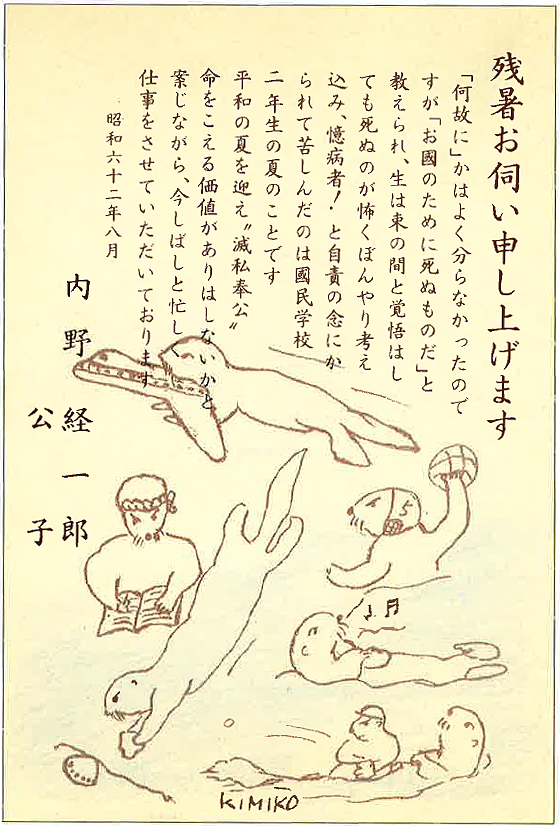 残暑お伺い申し上げます
「何故に」かはよく分らなかったので
すが「お國のために死ぬものだ」と
教えられ、生は束の間と覚悟はし
ても死ぬのが怖くぼんやり考え
込み、憶病者！と自責の念にか
られて苦しんだのは國民学校
二年生の夏のことです
平和の夏を迎え〝滅私奉公〟
命をこえる価値がありはしないかと
案じながら、今しばしと忙しく
仕事をさせていただいております
昭和六十二年八月
内野経一郎
公子
5
KIMIKO